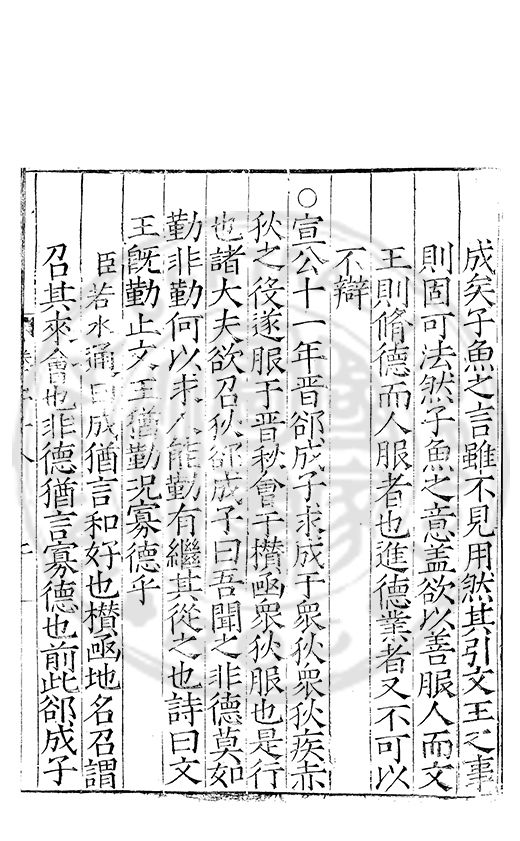 成矣子魚之言雖不見用然其引文王之事
則固可法然子魚之意蓋欲以善服人而文
王則脩德而人服者也進德業者又不可以
不辯
○宣公十一年晉郤成子求成于眾狄眾狄疾赤
狄之役遂服于晉秋會于欑函眾狄服也是行
也諸大夫欲召狄郤成子曰吾聞之非德莫如
勤非勤何以求人能勤有繼其從之也詩曰文
王旣勤止文王猶勤況寡德乎
臣若水通曰成猶言和好也欑函地名召謂
召其來會也非德猶言寡德也前此郤成子